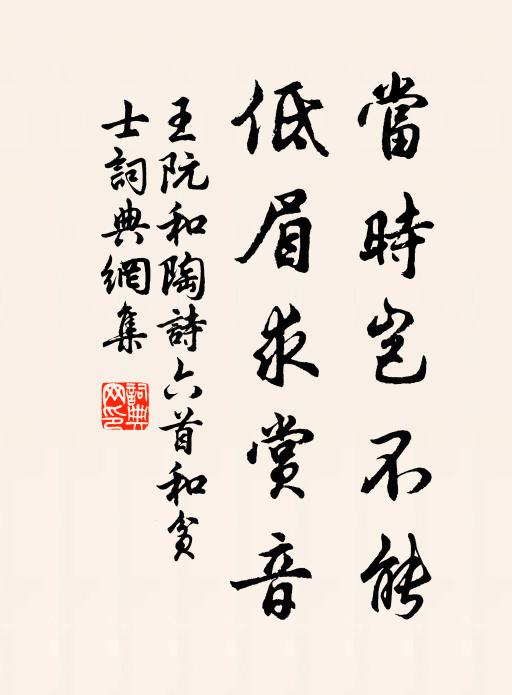 當時岂不能
低眉求賞音
王阮和陶詩六首和貧
士詞典網集
詞典
网印